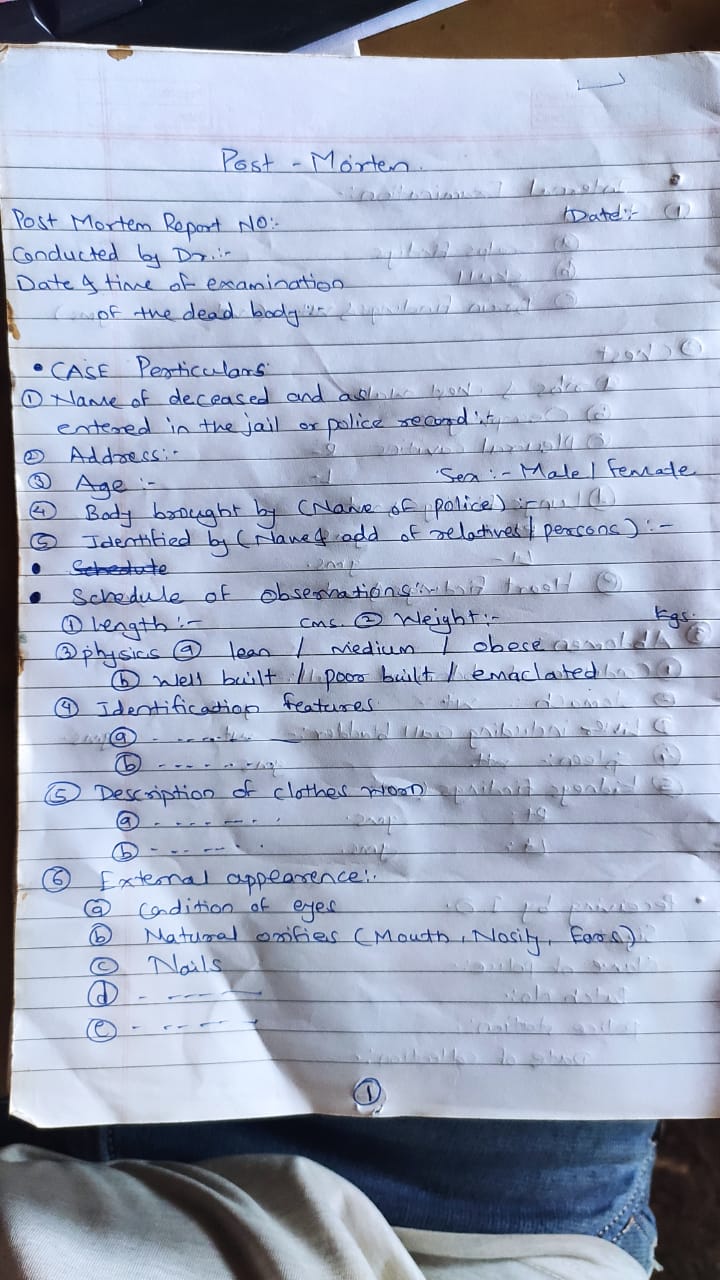 Post - Morten.
Post Mortem Report No:-
Date:-
Conducted by Dr.:-
Date & time of examination
of the dead body :-
• CASE Perticulars:
① Name of deceased and as
entered in the jail or police record:-
② Address:-
③ Age :- Sex :- Male / female
④ Body brought by (Name of police) :-
⑤ Identified by (Name & add of relatives / persons) :-
• Schedule
• Schedule of observations:-
① Length :- cms. ② Weight:- kgs.
③ physics ⓐ lean / Medium / obese
ⓑ Well built / poor built / emaclated
④ Identification features
ⓐ - - - - -
ⓑ - - - - -
⑤ Description of clothes woon
ⓐ - - - - - -
ⓑ - - - - -
⑥ External appearence:-
ⓐ Condition of eyes
ⓑ Natural orifies (Mouth, Nosity, Ears)
ⓒ Nails
ⓓ - - - - -
ⓔ - - - - -
①